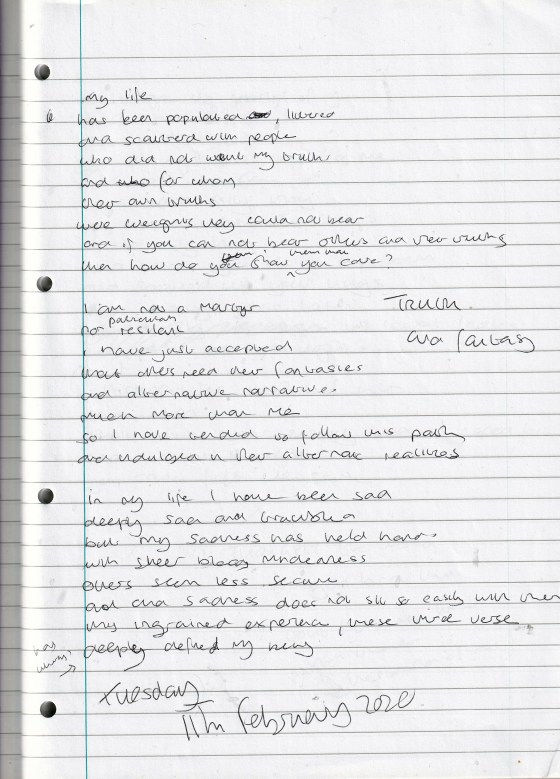 my life
has been populated, littered
and scattered with people
who did not want my truth.
and who for whom
their own truths
were weights they could not bear
and if you can not bear others and their
then how do you show them that you care?
I am not a Martyr
Truth.
nor particularly resilant
and fantasy
I have just accepted
that others need their fantasies
and alternative narratives
much more than me
so I have tended to follow this path
and indulged in their alternate realities
in my life I have been sad
deeply sad and
but my sadness has held hands
with sheer bloody mindedness
others seem less secure
and sadness does not sit so easily with them
my ingrained experience, these three verse
has always deeply defined my being
Tuesday
11th February 2020